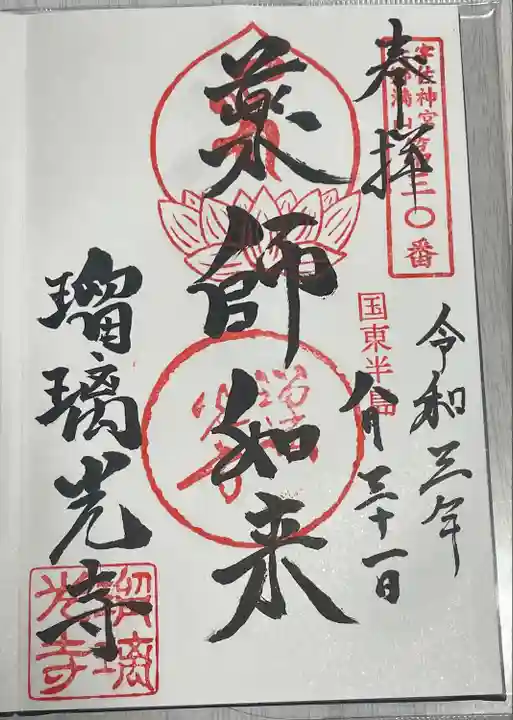 奉拝
宇佐神宮
六郷満山
三〇番
国東半島
令和三年
八月三十一日
薬師如来
瑠璃光寺
瑠璃
光寺